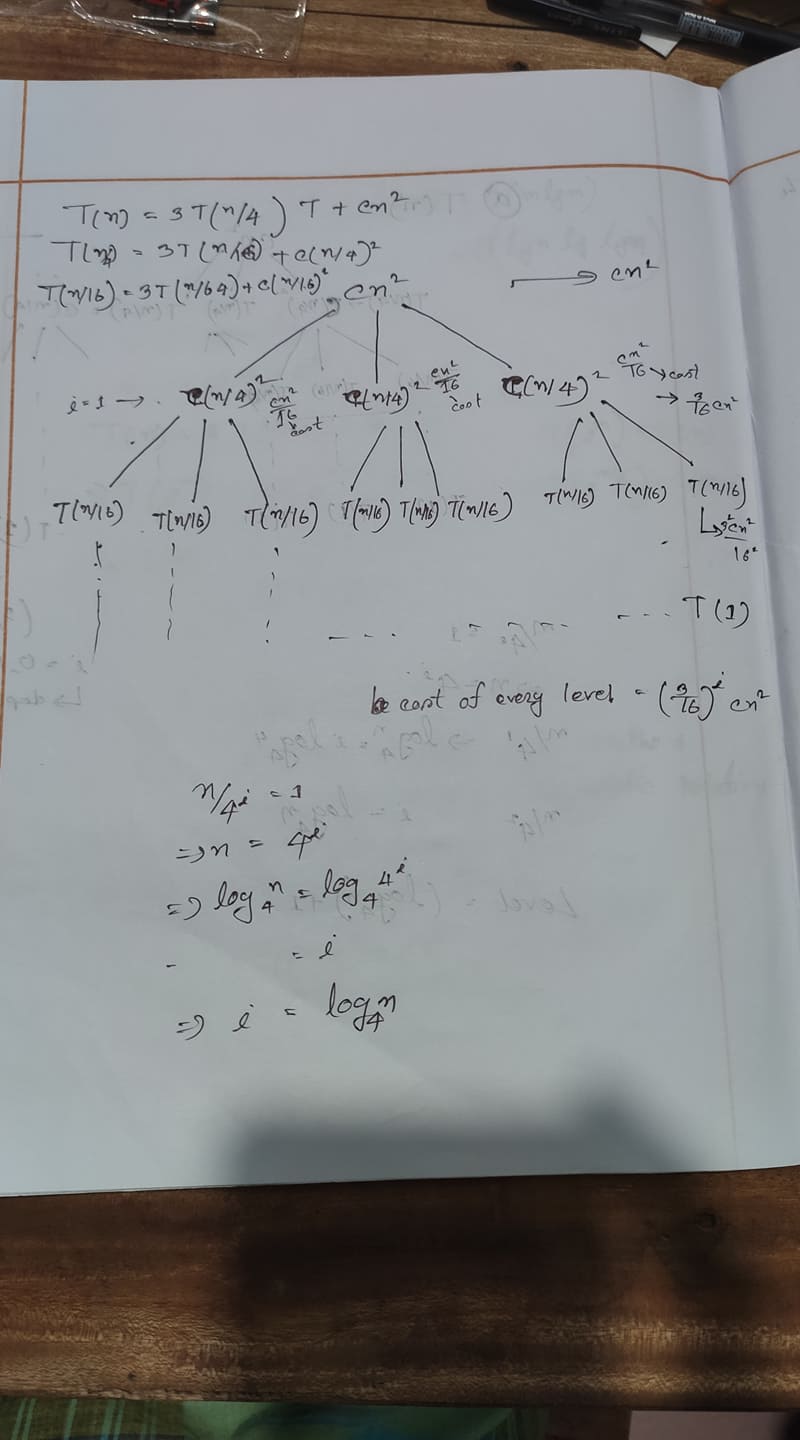 T(n) = 3T(n/4) T + cn²
T(n/4) = 3T(n/16) + c(n/4)²
T(n/16) = 3T(n/64) + c(n/16)²
cn² → cn²
i = 1 → c(n/4)² cn²/16 cost c(n/4)² cn²/16 cost c(n/4)² cn²/16 → cost
→ 3/16 cn²
T(n/16) T(n/16) T(n/16) T(n/16) T(n/16) T(n/16) T(n/16) T(n/16) T(n/16)
↳ 3²cn²/16²
- - . . . - - - T(1)
cost of every level = (3/16)^i cn²
n/4^i = 1
⇒ n = 4^i
⇒ log₄ n = log₄ 4^i
- = i
⇒ i = log₄ n